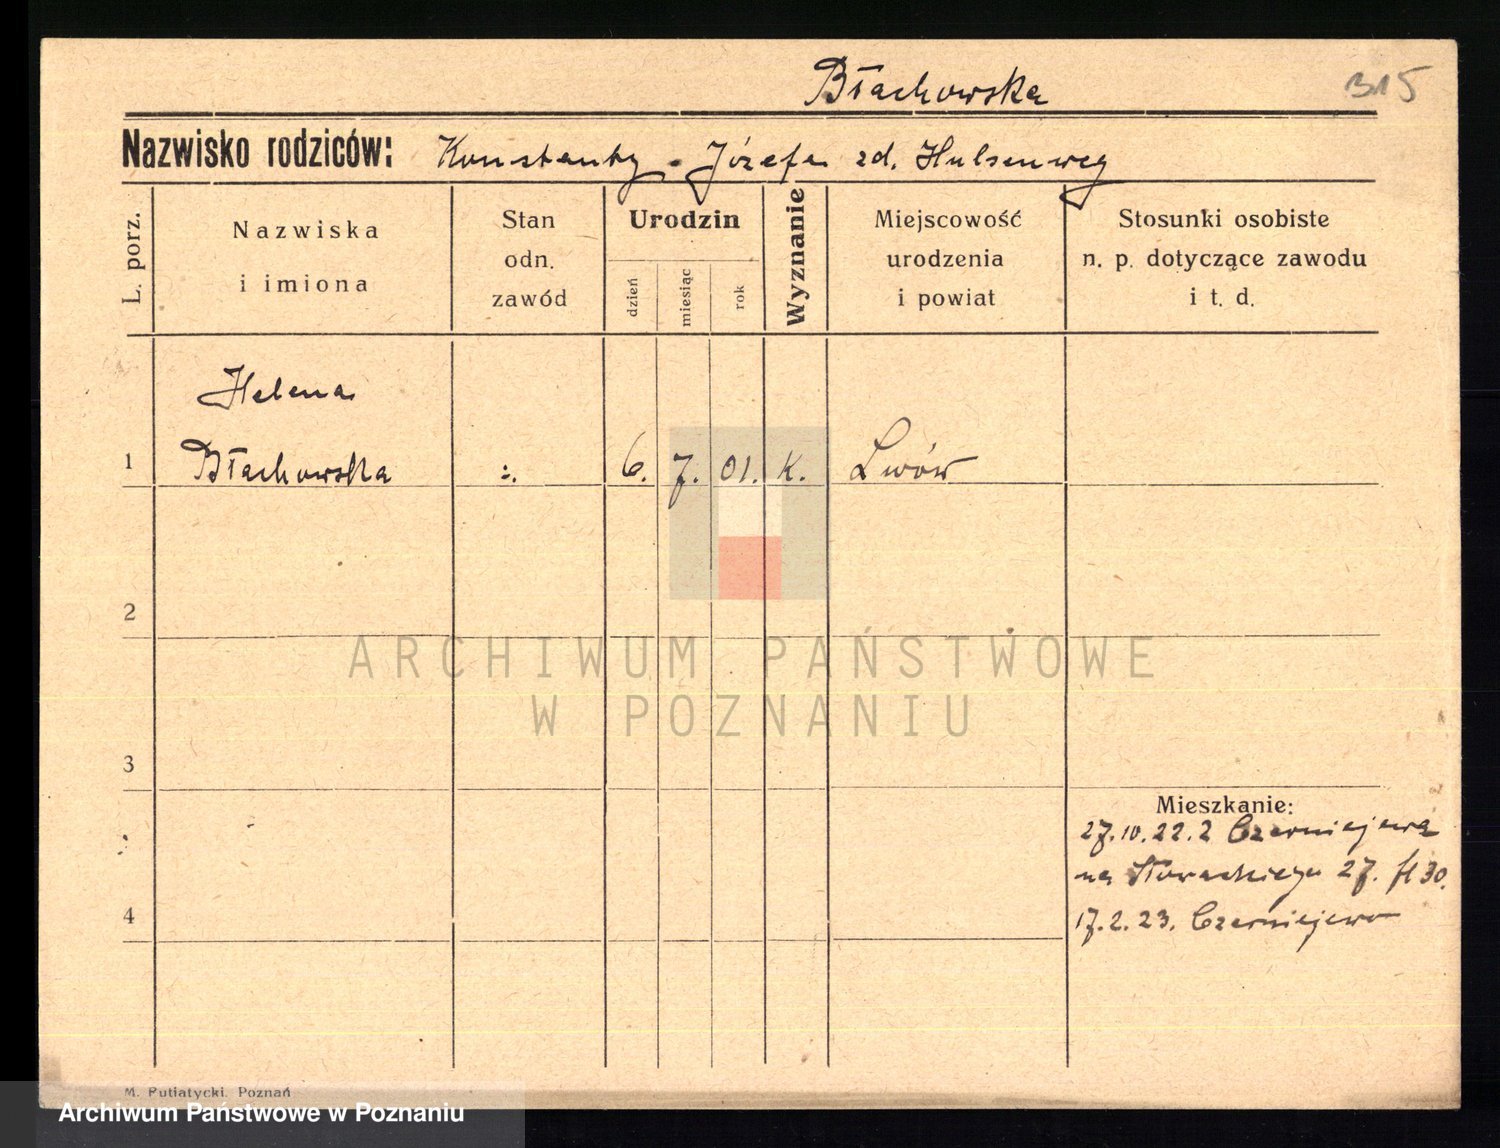 Błachowska
315
Nazwisko rodziców: Konstanty - Józefa zd. Hulsenweg
L. porz.
Nazwiska
i imiona
Stan
odn.
zawód
Urodzin
dzień
miesiąc
rok
Wyznanie
Miejscowość
urodzenia
i powiat
Stosunki osobiste
n. p. dotyczące zawodu
i t. d.
Helena
1 Błachowska :. 6. 7. 01. K. Lwów
2
ARCHIWUM PAŃSTWOWE
W POZNANIU
3
Mieszkanie:
27.10.22. z Czerniejewa
na Słowackiego 27.
4
17.2.23. Czerniejewo
M. Putiatycki. Poznań
Archiwum Państwowe w Poznaniu